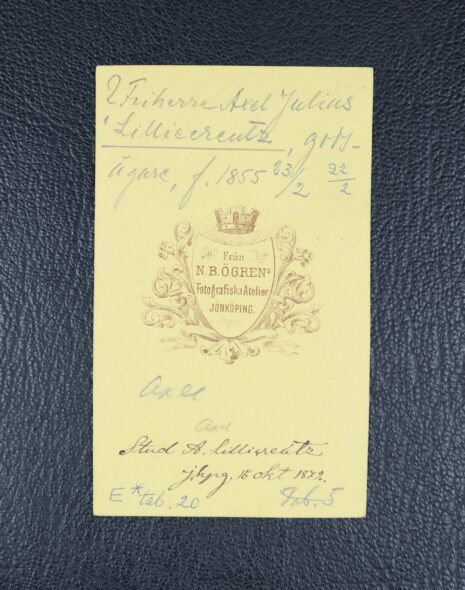 ? Friherre Axel Julius
Lilliecreutz, gods-
ägare, f. 1855 23/2 22/2
Från
N. B. ÖGRENs
Fotografiska Atelier
JÖNKÖPING.
Axel
Axel
Stud A. Lilliecreutz
jkpg. 18 okt 1872.
E* tab. 20
Tab. 5